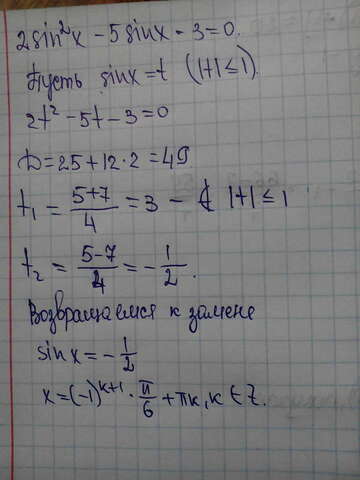 2sin²x - 5sinx - 3 = 0.
Пусть sinx = t (|t| ≤ 1).
2t² - 5t - 3 = 0
D = 25 + 12·2 = 49
t₁ = (5+7)/4 = 3 - ∉ |t| ≤ 1
t₂ = (5-7)/4 = -1/2.
Возвращаемся к замене
sin x = -1/2
x = (-1)ᵏ⁺¹ · π/6 + πk, k ∈ Z.